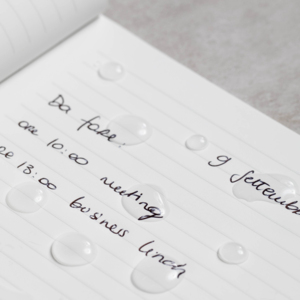 Da fare:
9 Settembr
ore 10:00 meeting
ore 13:00 business lunch